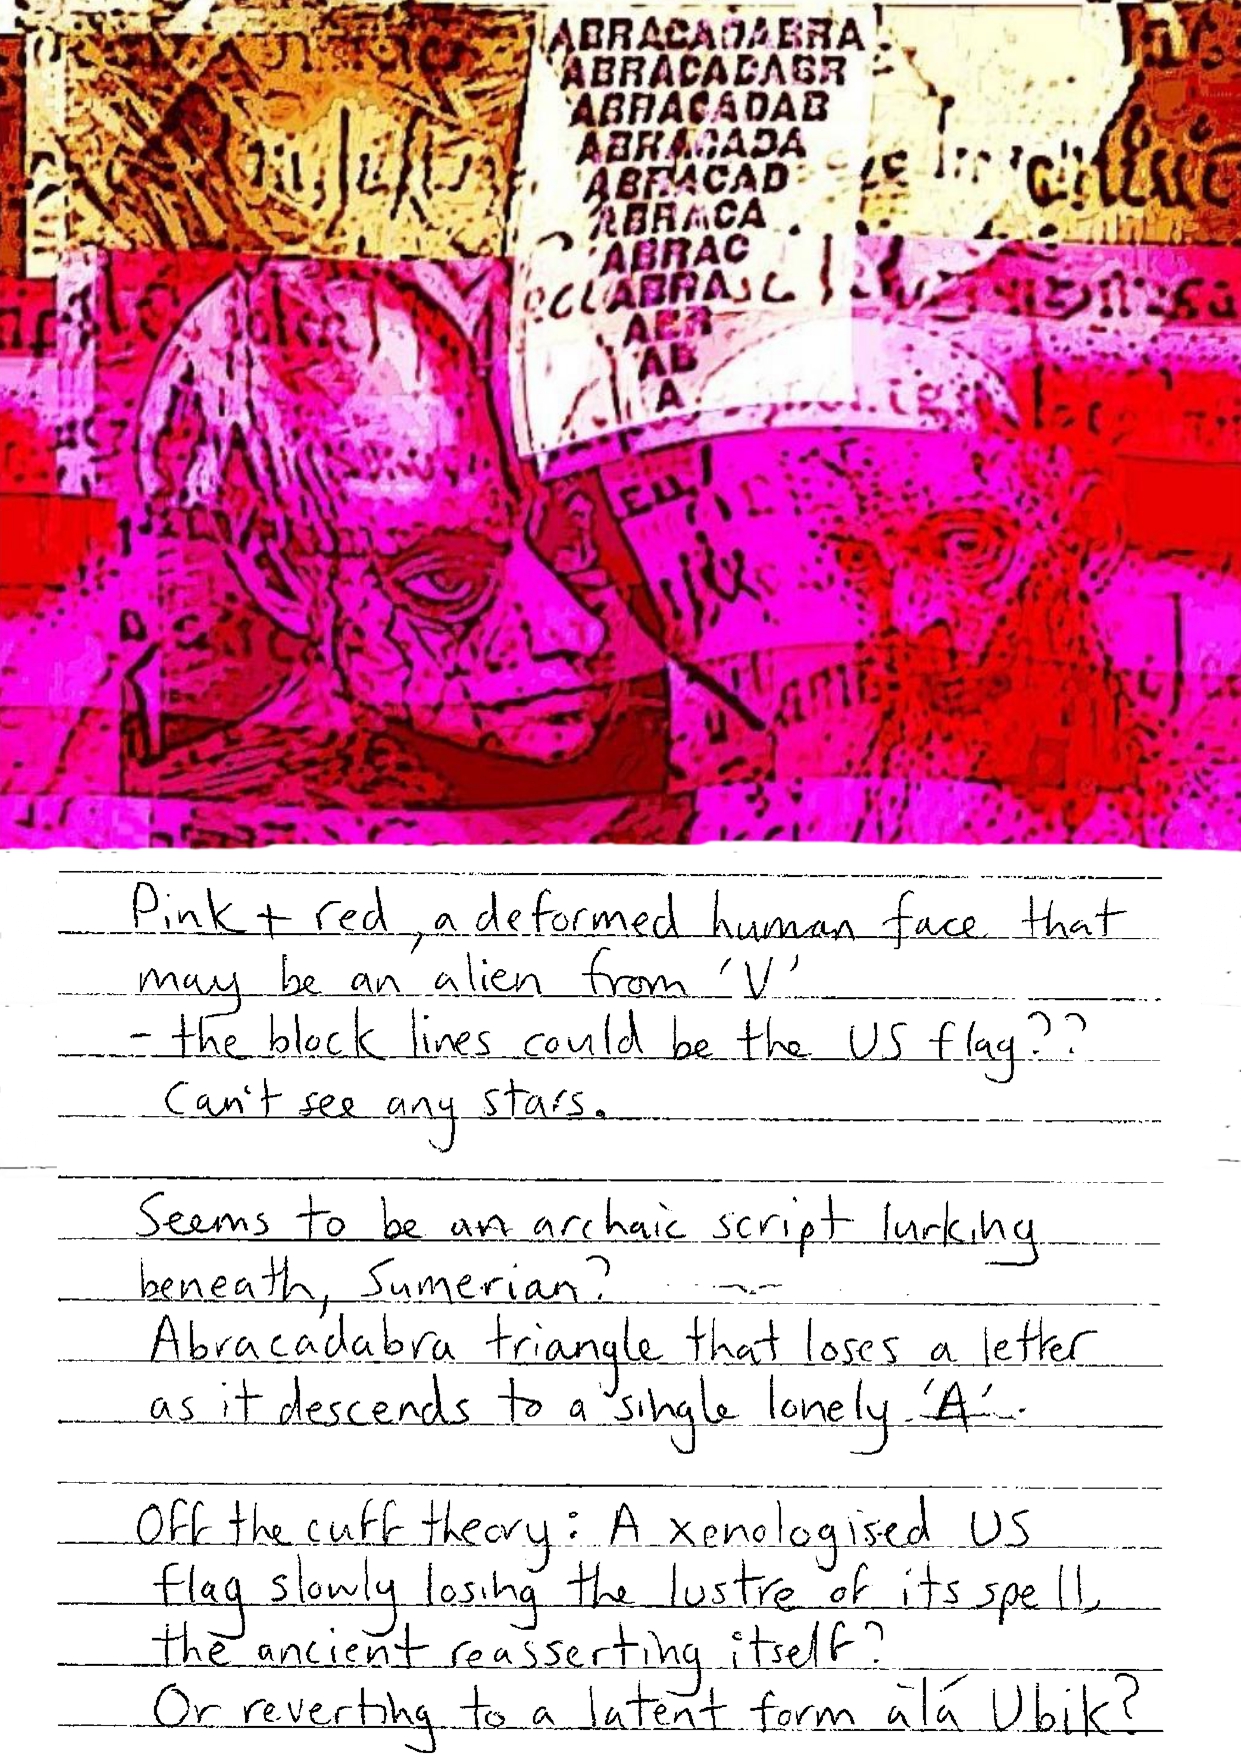 ABRACADABRA
ABRACADABR
ABRACADAB
ABRACADA
ABRACAD
ABRACA
ABRAC
ABRA
ABR
AB
A
Pink + red, a deformed human face that
may be an alien from 'V'
- the block lines could be the US flag??
Can't see any stars.
Seems to be an archaic script lurking
beneath, Sumerian?
Abracadabra triangle that loses a letter
as it descends to a single lonely 'A'.
Off the cuff theory: A xenologised US
flag slowly losing the lustre of its spell,
the ancient reasserting itself?
Or reverting to a latent form àlá Ubik?